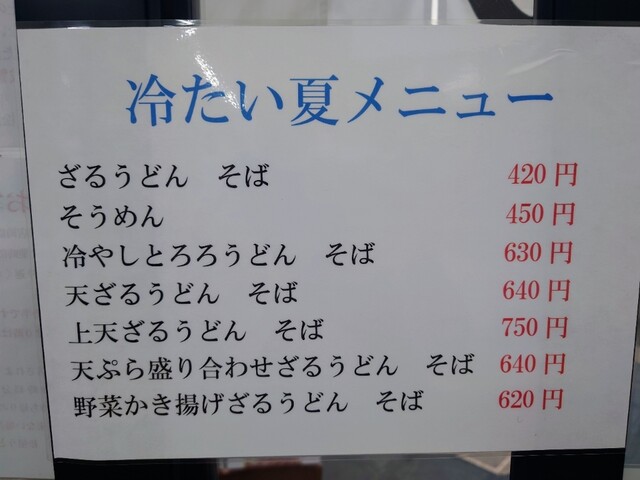 冷たい夏メニュー
ざるうどん　そば　420円
そうめん　450円
冷やしとろろうどん　そば　630円
天ざるうどん　そば　640円
上天ざるうどん　そば　750円
天ぷら盛り合わせざるうどん　そば　640円
野菜かき揚げざるうどん　そば　620円